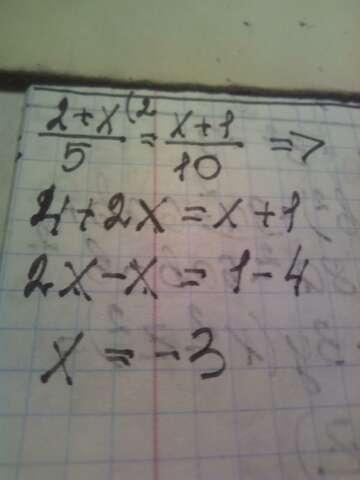 (2+x)/5 (2 = (x+1)/10 =>
4+2x=x+1
2x-x=1-4
x=-3